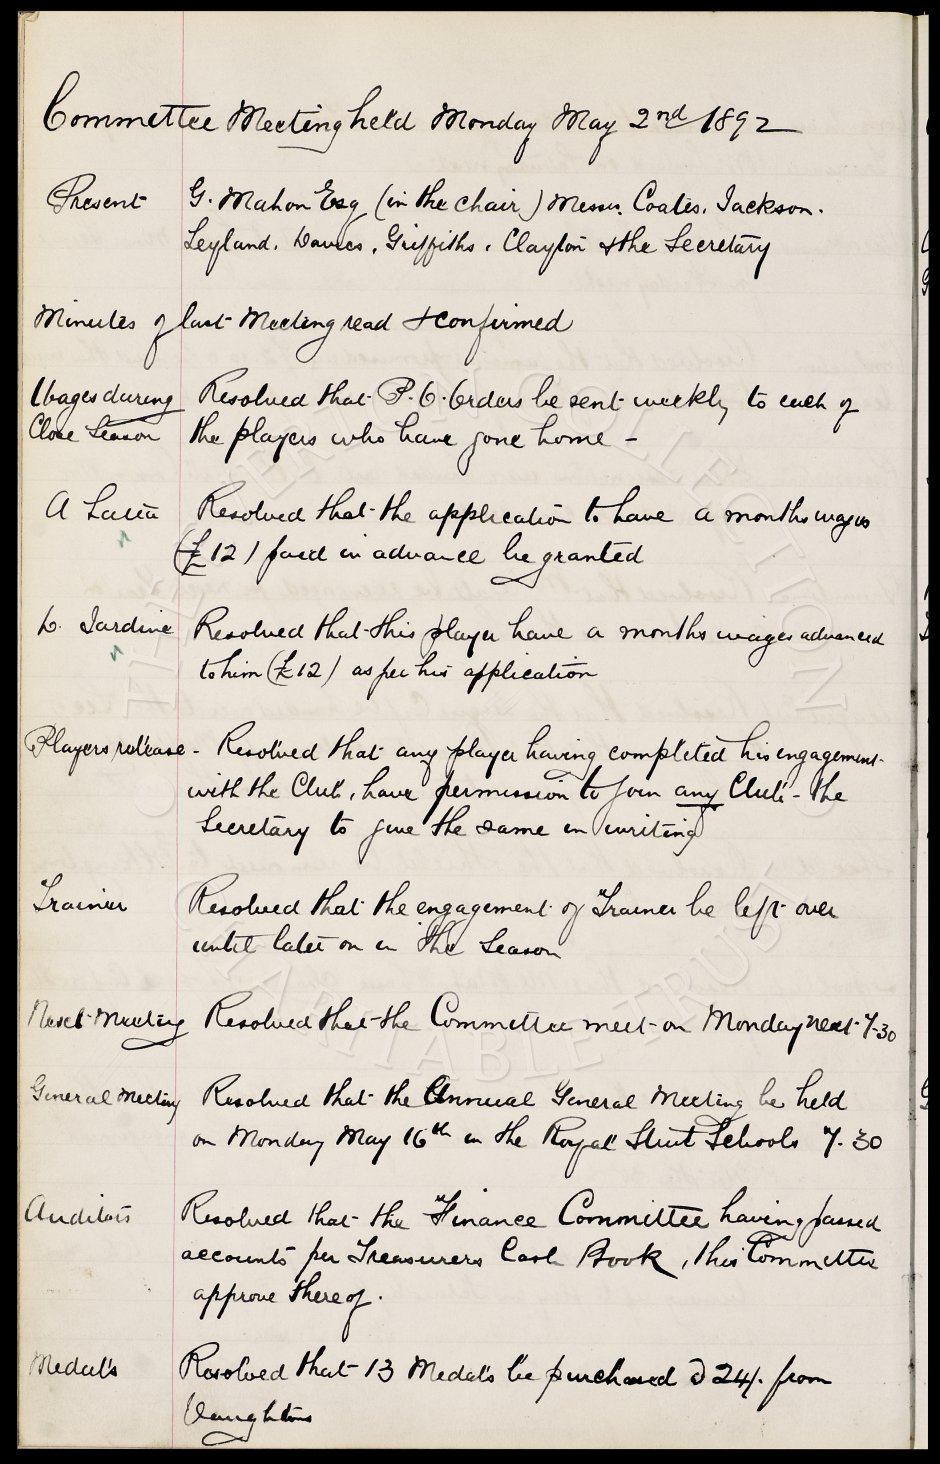 Committee Meeting held Monday May 2nd 1892
Present G. Mahon Esq (in the chair) Messrs. Coates. Jackson.
Leyland. Davies. Griffiths. Clayton & the Secretary
Minutes of last Meeting read & confirmed
Wages during Resolved that P.O. Orders be sent weekly to each of
Close Season the players who have gone home -
A Latta Resolved that the application to have a months wages
(£12) paid in advance be granted
D. Jardine Resolved that this player have a months wages advanced
to him (£12) as per his application
Players release - Resolved that any player having completed his engagement
with the Club, have permission to join any Club - the
Secretary to give the same in writing
Trainer Resolved that the engagement of Trainer be left over
until later on in the Season
Next Meeting Resolved that the Committee meet on Monday next 7-30
General Meeting Resolved that the Annual General Meeting be held
on Monday May 16th in the Royal Street Schools 7.30
Auditors Resolved that the Finance Committee having passed
accounts per Treasurers Cash Book, this Committee
approve thereof.
Medals Resolved that 13 Medals be purchased @ 24/- from
Vaughtons
THE EVERTON COLLECTION
CHARITABLE TRUST